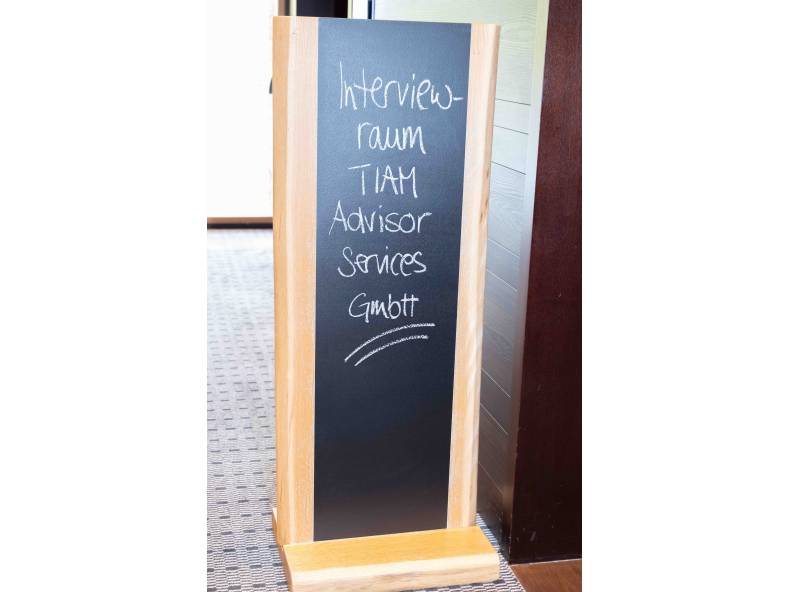 Interview-
raum
TIAM
Advisor
Services
GmbH